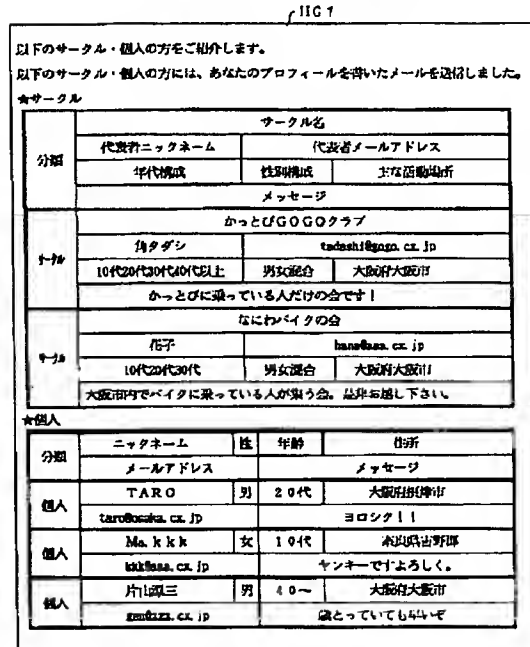 HG 7
以下のサークル・個人の方をご紹介します。
以下のサークル・個人の方には、あなたのプロフィールを書いたメールを送信しました。
★サークル
分類
サークル名
代表者ニックネーム 代表者メールアドレス
年代構成 性別構成 主な活動場所
メッセージ
サークル
かっとびGOGOクラブ
タダシ tadashi@gogo.cx.jp
10代20代30代40代以上 男女混合 大阪府大阪市
かっとびに乗っている人だけの会です！
サークル
なにわバイクの会
花子 hana@asa.cx.jp
10代20代30代 男女混合 大阪府大阪市
大阪市内でバイクに乗っている人が集う会。是非お越し下さい。
★個人
分類
ニックネーム 性 年齢 住所
メールアドレス メッセージ
個人
TARO 男 20代 大阪府摂津市
taro@osaka.cx.jp ヨロシク！！
個人
Ma.kkk 女 10代 奈良県吉野郡
kkk@asa.cx.jp ヤンキーですよろしく。
個人
片山源三 男 40～ 大阪府大阪市
gen@zzz.cx.jp 歳とっていても早いぞ